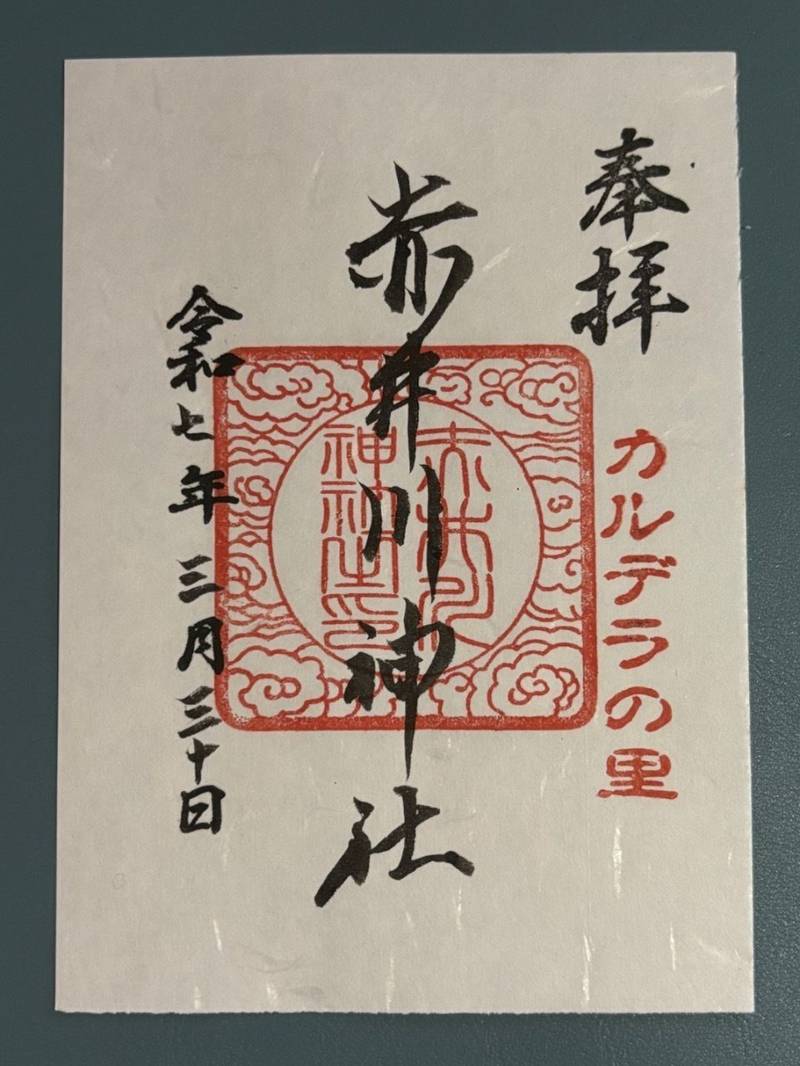 奉拝
カルデラの里
赤井川神社
赤井川
神社之印
令和七年三月三十日